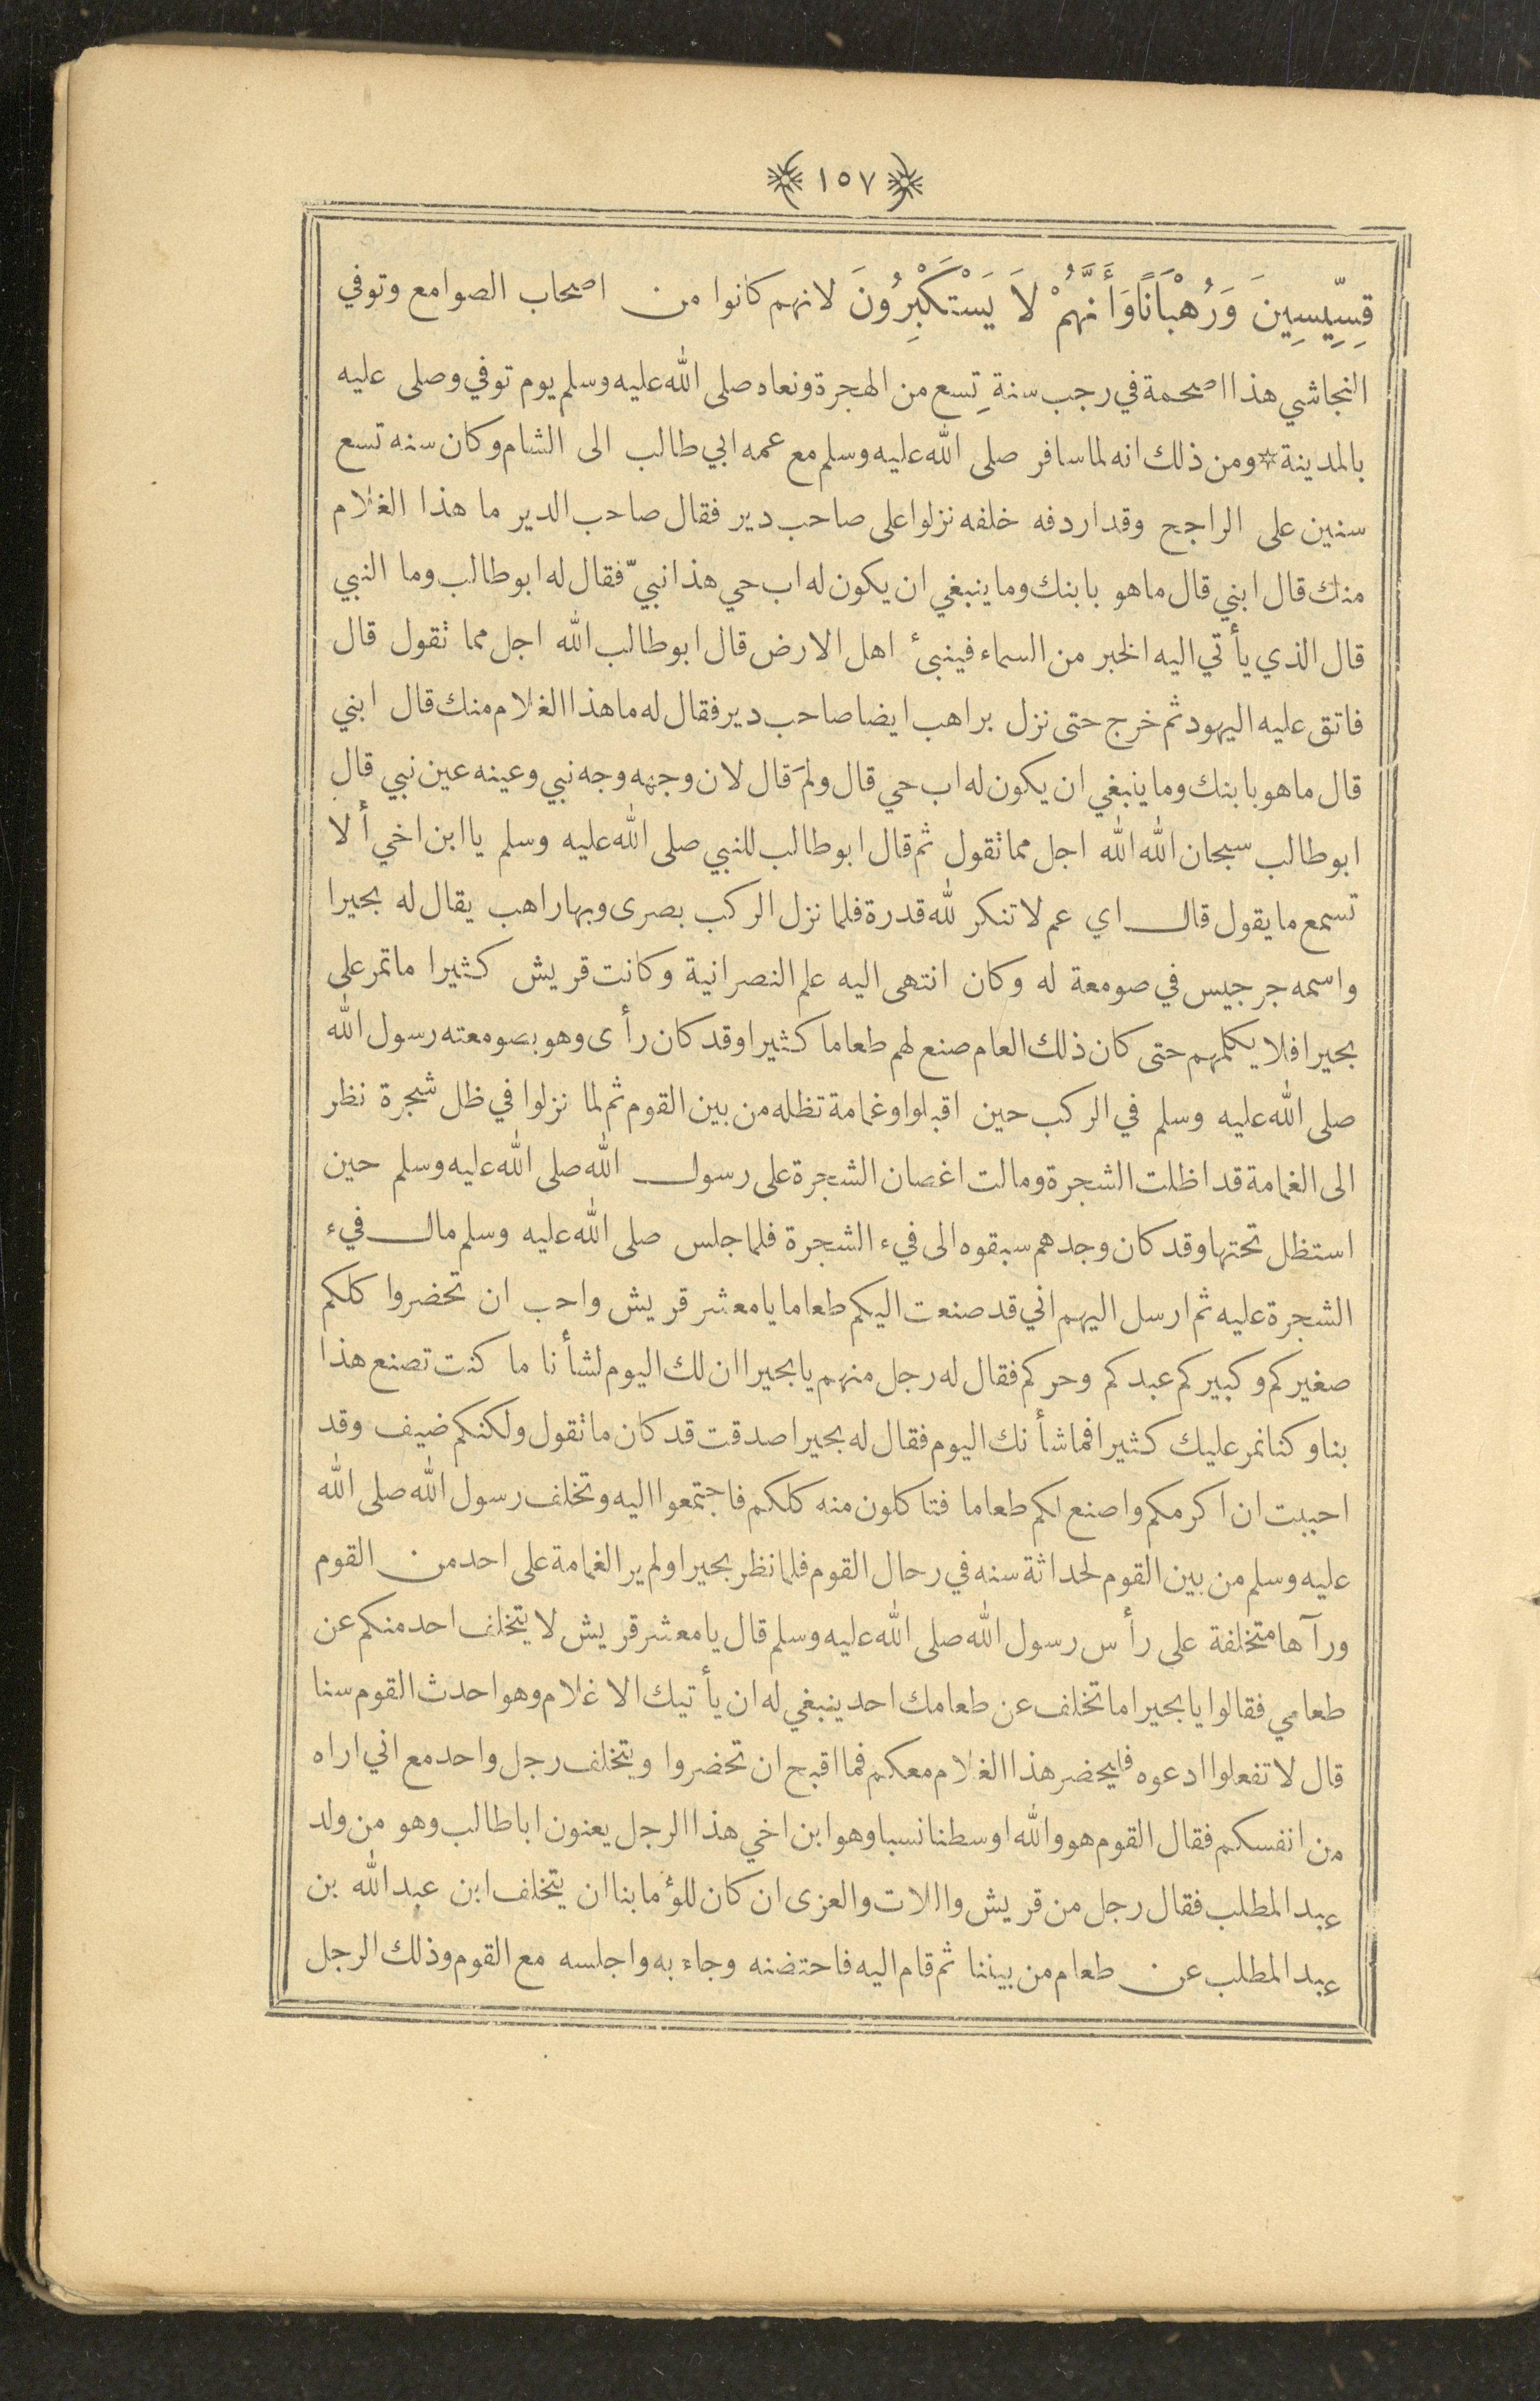 ١٥٧
قِسِّيسِينَ وَرُهْبَانًا وَأَنَّهُمْ لَا يَسْتَكْبِرُونَ لانهم كانوا من اصحاب الصوامع وتوفي
النجاشي هذا اصحمة في رجب سنةِ تسع من الهجرة ونعاه صلى الله عليه وسلم يوم توفي وصلى عليه
بالمدينة * ومن ذلك انه لما سافر صلى الله عليه وسلم مع عمه ابي طالب الى الشام وكان سنه تسع
سنين على الراجح وقد اردفه خلفه نزلوا على صاحب دير فقال صاحب الدير ما هذا الغلام
منك قال ابني قال ما هو بابنك وما ينبغي ان يكون له اب حي هذا نبيّ فقال له ابو طالب وما النبي
قال الذي يأتي اليه الخبر من السماء فينبئ اهل الارض قال ابو طالب الله اجل مما تقول قال
فاتق عليه اليهود ثم خرج حتى نزل براهب ايضا صاحب دير فقال له ما هذا الغلام منك قال ابني
قال ما هو بابنك وما ينبغي ان يكون له اب حي قال ولمَ قال لان وجهه وجه نبي وعينه عين نبي قال
ابو طالب سبحان الله الله اجل مما تقول ثم قال ابو طالب للنبي صلى الله عليه وسلم يا ابن اخي ألا
تسمع ما يقول قال اي عم لا تنكر لله قدرة فلما نزل الركب بصرى وبها راهب يقال له بحيرا
واسمه جرجيس في صومعة له وكان انتهى اليه علم النصرانية وكانت قريش كثيرا ما تمر على
بحيرا فلا يكلمهم حتى كان ذلك العام صنع لهم طعاما كثيرا وقد كان رأى وهو بصومعته رسول الله
صلى الله عليه وسلم في الركب حين اقبلوا وغمامة تظله من بين القوم ثم لما نزلوا في ظل شجرة نظر
الى الغمامة قد اظلت الشجرة ومالت اغصان الشجرة على رسول الله صلى الله عليه وسلم حين
استظل تحتها وقد كان وجدهم سبقوه الى فيء الشجرة فلما جلس صلى الله عليه وسلم مال فيء
الشجرة عليه ثم ارسل اليهم اني قد صنعت اليكم طعاما يا معشر قريش واحب ان تحضروا كلكم
صغيركم وكبيركم عبدكم وحركم فقال له رجل منهم يا بحيرا ان لك اليوم لشأنا ما كنت تصنع هذا
بنا وكنا نمر عليك كثيرا فما شأنك اليوم فقال له بحيرا صدقت قد كان ما تقول ولكنكم ضيف وقد
احببت ان اكرمكم واصنع لكم طعاما فتاكلون منه كلكم فاجتمعوا اليه وتخلف رسول الله صلى الله
عليه وسلم من بين القوم لحداثة سنه في رحال القوم فلما نظر بحيرا ولم ير الغمامة على احد من القوم
ورآها متخلفة على رأس رسول الله صلى الله عليه وسلم قال يا معشر قريش لا يتخلف احد منكم عن
طعامي فقالوا يا بحيرا ما تخلف عن طعامك احد ينبغي له ان يأتيك الا غلام وهو احدث القوم سنا
قال لا تفعلوا ادعوه فليحضر هذا الغلام معكم فما اقبح ان تحضروا ويتخلف رجل واحد مع اني اراه
من انفسكم فقال القوم هو والله اوسطنا نسبا وهو ابن اخي هذا الرجل يعنون ابا طالب وهو من ولد
عبد المطلب فقال رجل من قريش واللات والعزى ان كان للؤما بنا ان يتخلف ابن عبد الله بن
عبد المطلب عن طعام من بيننا ثم قام اليه فاحتضنه وجاء به واجلسه مع القوم وذلك الرجل